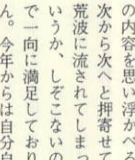 の内容を思い浮かべ
次から次へと押寄せて
荒波に流されてしまっ
いうか、しぞこないの
で一向に満足しており
ん。今年からは自分自